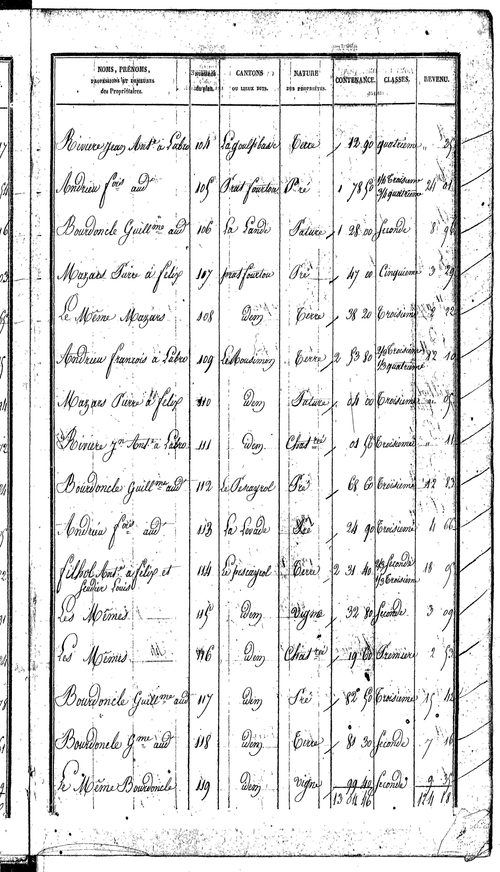 NOMS, PRÉNOMS, PROFESSIONS ET DEMEURES des Propriétaires. NUMÉROS du plan. CANTONS OU LIEUX DITS. NATURE DES PROPRIÉTÉS. CONTENANCE. CLASSES. REVENU.
Riviere Jean Ant.e à Labro 104 Lagoulphasse Terre " 12 90 quatrieme "
Andrieu fois aud 105 Prat fourtou Pré 1 78 50 1/4 Troisieme 3/4 quatrieme 24 01
Bourdoncle Guill.me aud 106 La Lande Pature 1 28 00 Seconde 8 96
Mazars Pierre à felix 107 prat fourtou Pré " 47 00 Cinquieme 3 29
Le Même Mazars 108 idem Terre 38 20 Troisieme 22
Andrieu francois à Labro 109 Terre 2 53 80 2/3 Troisieme 1/3 quatrieme 10
Mazars Pierre à felix 110 idem Pature 04 00 Troisieme 05
Riviere Jn Ant.e à Labro 111 idem Chat.re 01 50 Troisieme " 11
Bourdoncle Guill.me aud 112 Le Pescayrol Pré " 68 60 Troisieme 12 83
Andrieu fois aud 113 La Levade Pré 24 90 Troisieme 4 66
filhol Ant.e à felix et 114 Le pescayrol Terre 2 31 40 2/3 Seconde 1/3 Troisieme 18 05
Louis
Les Mêmes 115 idem Vigne " 32 80 Seconde 3 09
Les Mêmes 116 idem Chat.re 19 60 Premiere 2 53
Bourdoncle Guill.me aud 117 idem Pré " 82 50 Troisieme 15 42
Bourdoncle G.me aud 118 idem Terre " 81 30 Seconde 7 16
Le Même Bourdoncle 119 idem Vigne 99 40 Seconde 9 35
13 04 46 124